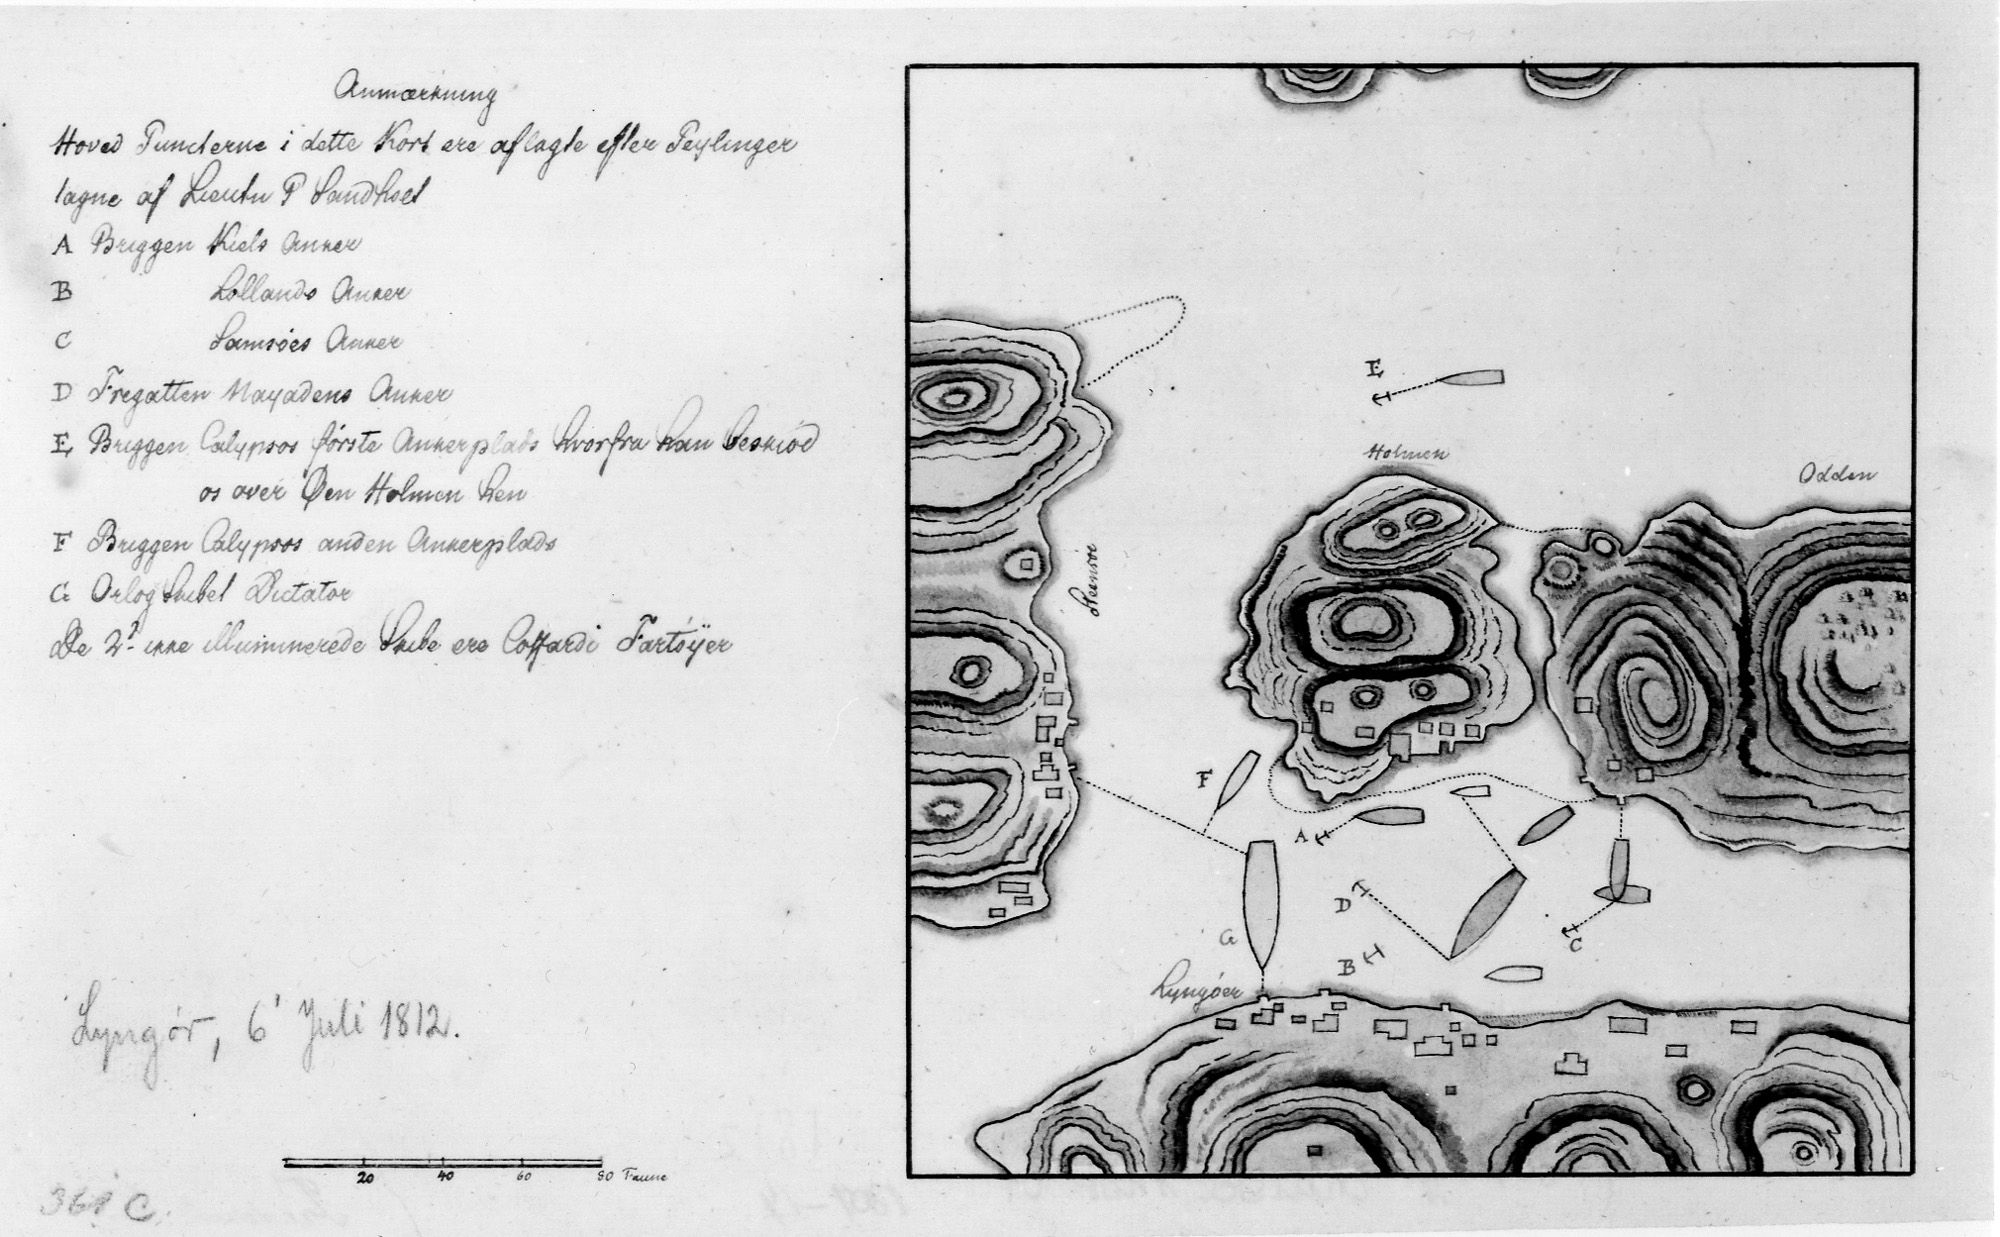 Anmærkning
Hoved Puncterne i dette Kort ere aflagte efter Peylinger
tagne af Lieutn P Sandholt
A Briggen Kiels Anker
B Lollands Anker
C Samsöes Anker
D Fregatten Nayadens Anker
E Briggen Calypsos förste Ankerplads hvorfra han beskiöd
os over Öen Holmen hen
F Briggen Calypsos anden Ankerplads
G Orlog Skibet Dictator
De 2de ikke illuminerede Skibe ere Coffardi Fartöÿer
Lyngör, 6' Juli 1812.
20 40 60 80 Favne
361 C.
E
Holmen
Odden
F
A
D
G
B
C
Lyngöer